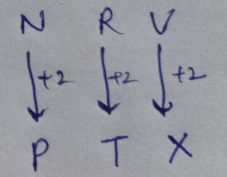 N R V
+2 +2 +2
P T X